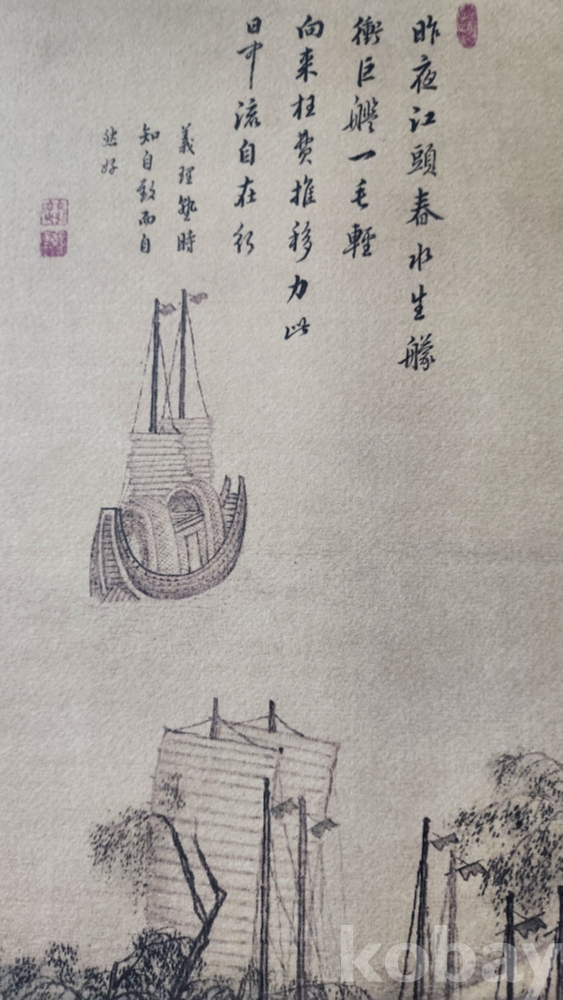 昨夜江頭春水生艨
衝巨艦一毛輕
向来枉費推移力此
日中流自在行
義理熟時
知自效而自
然好
kobay